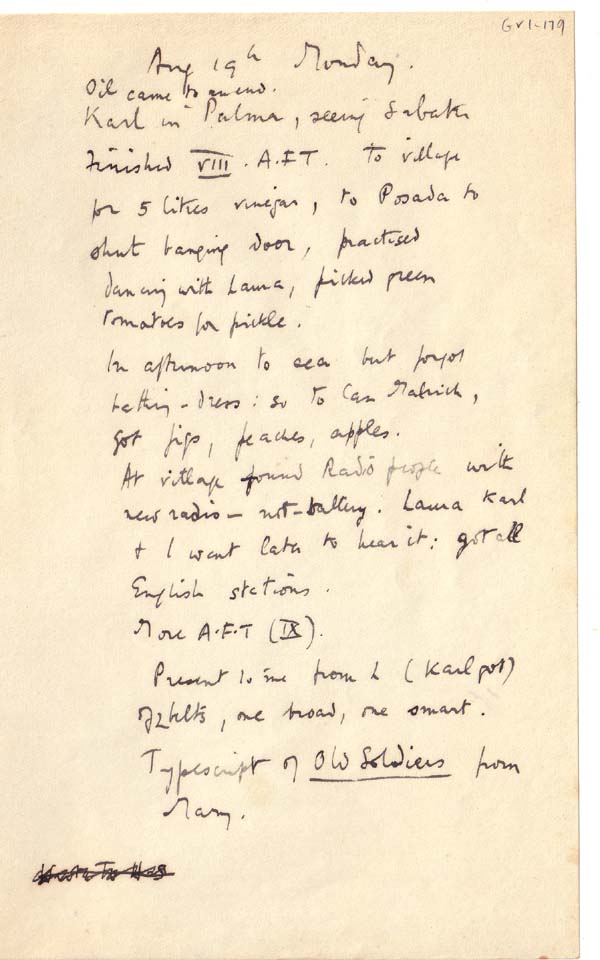 GV1-179
Aug 19th Monday.
Oil came to amend.
Karl in Palma, seeing Sabater
Finished VIII. A.F.T. To village
for 5 litres vinegar, to Posada to
shut banging door, practised
dancing with Laura, picked green
tomatoes for pickle.
In afternoon to sea but forgot
bathing-dress: so to Can Madrich,
got figs, peaches, apples.
At village found Radio people with
new radio - not-battery. Laura Karl
& I went later to hear it: got all
English stations.
More A.F.T (IX).
Present to me from L (Karl got)
of 2 belts, one broad, one smart.
Typescript of Old Soldiers from
Mary.